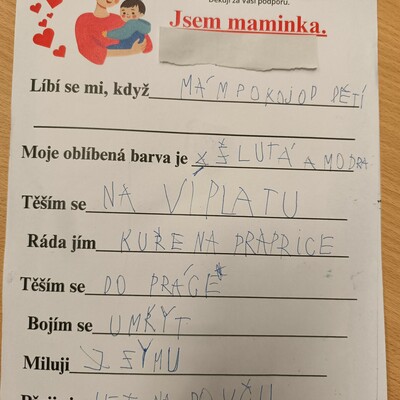 Děkuji za Vaši podporu.
Jsem maminka.
Líbí se mi, když MÁM POKOJ OD DĚTÍ
Moje oblíbená barva je ŽLUTÁ A MODRA
Těším se NA VÍPLATU
Ráda jím KUŘE NA PRAPRICE
Těším se DO PRÁCE
Bojím se UMŘÝT
Miluji SÝMU